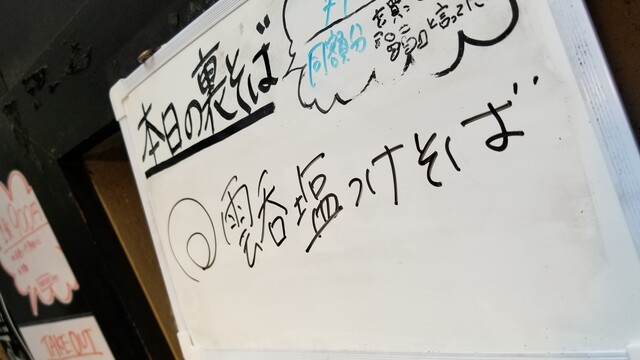 本日の裏そば
同額分
を買っ
と言ってた
◎雲呑塩つけそば
TAKE OUT